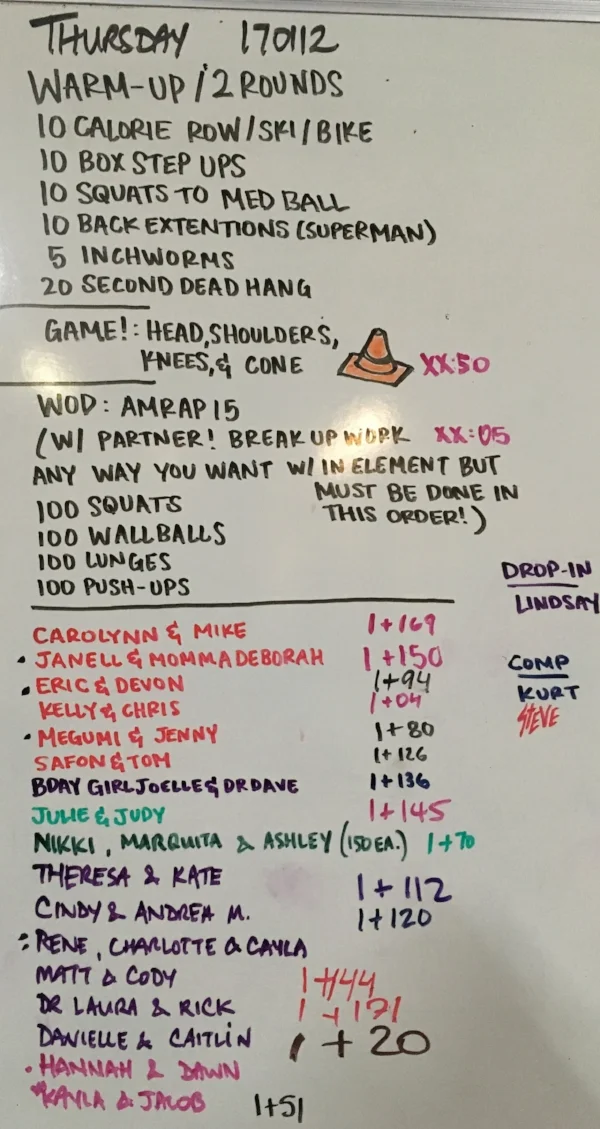 THURSDAY 170112
WARM-UP / 2 ROUNDS
10 CALORIE ROW/SKI/BIKE
10 BOX STEP UPS
10 SQUATS TO MED BALL
10 BACK EXTENTIONS (SUPERMAN)
5 INCHWORMS
20 SECOND DEAD HANG
GAME!: HEAD, SHOULDERS,
KNEES, & CONE XX:50
WOD: AMRAP 15
(W/ PARTNER! BREAK UP WORK XX:05
ANY WAY YOU WANT W/ IN ELEMENT BUT
MUST BE DONE IN
THIS ORDER!)
100 SQUATS
100 WALLBALLS
100 LUNGES
100 PUSH-UPS
CAROLYNN & MIKE 1+169
• JANELL & MOMMA DEBORAH 1+150
• ERIC & DEVON 1+94
KELLY & CHRIS 1+04
• MEGUMI & JENNY 1+80
SAFON & TOM 1+126
BDAY GIRL JOELLE & DR DAVE 1+136
JULIE & JUDY 1+145
NIKKI, MARQUITA & ASHLEY (150 EA.) 1+70
THERESA & KATE 1+112
CINDY & ANDREA M. 1+120
: RENE, CHARLOTTE & CAYLA
MATT & CODY 1+144
DR LAURA & RICK 1+171
DANIELLE & CAITLIN 1+20
• HANNAH & DAWN
KAYLA & JACOB 1+51
DROP-IN
LINDSAY
COMP
KURT
STEVE